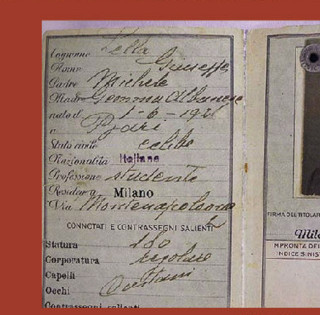 Cognome Sella
Nome Giuseppe
Padre Michele
Madre Gemma Albanese
nato il 1-6-1921
a Bari
Stato civile celibe
Nazionalità Italiana
Professione studente
Residenza Milano
Via Montenapoleone
CONNOTATI E CONTRASSEGNI SALIENTI
Statura 180
Corporatura regolare
Capelli Castani
Occhi
Contrassegni salienti
FIRMA DEL TITOLARE
Mila
IMPRONTA DEL
INDICE SINIST